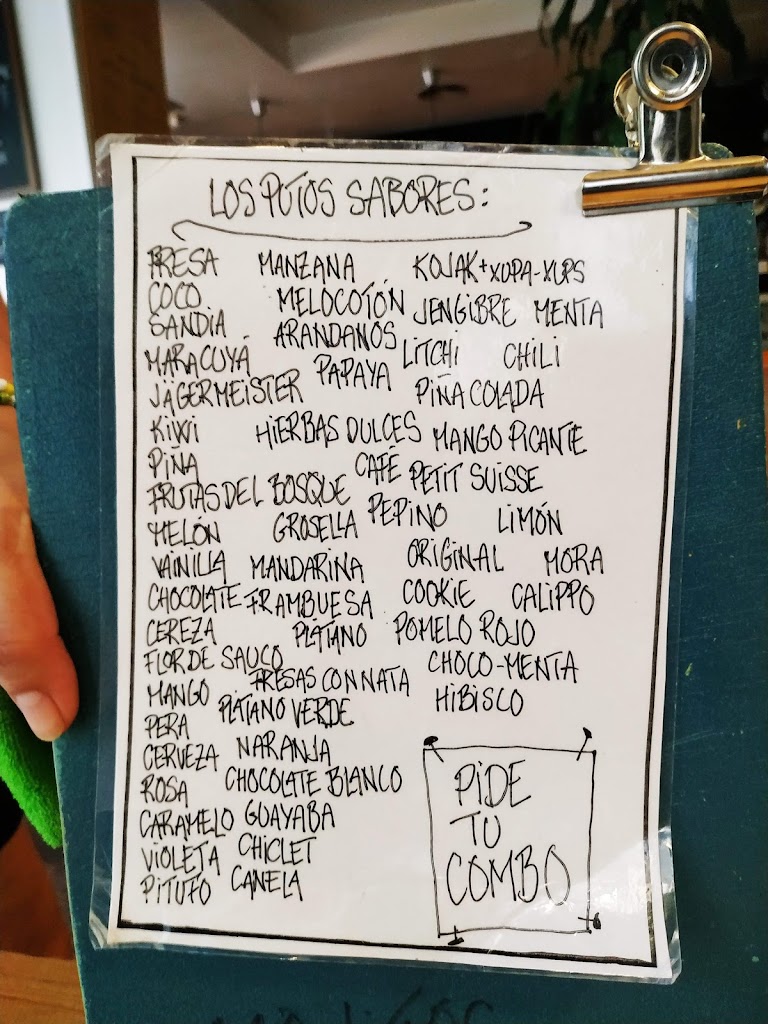 LOS PUTOS SABORES:
FRESA MANZANA KOJAK+XUPA-XUPS
COCO MELOCOTÓN JENGIBRE MENTA
SANDIA ARANDANOS
MARACUYÁ PAPAYA LITCHI CHILI
JÄGERMEISTER PIÑA COLADA
KIWI HIERBAS DULCES MANGO PICANTE
PIÑA CAFÉ PETIT SUISSE
FRUTAS DEL BOSQUE PEPINO LIMÓN
MELÓN GROSELLA
VAINILLA MANDARINA ORIGINAL MORA
CHOCOLATE FRAMBUESA COOKIE CALIPPO
CEREZA PLÁTANO POMELO ROJO
FLOR DE SAUCO CHOCO-MENTA
MANGO FRESAS CON NATA HIBISCO
PERA PLÁTANO VERDE
CERVEZA NARANJA
ROSA CHOCOLATE BLANCO
CARAMELO GUAYABA
VIOLETA CHICLET
PITUFO CANELA
PIDE
TU
COMBO